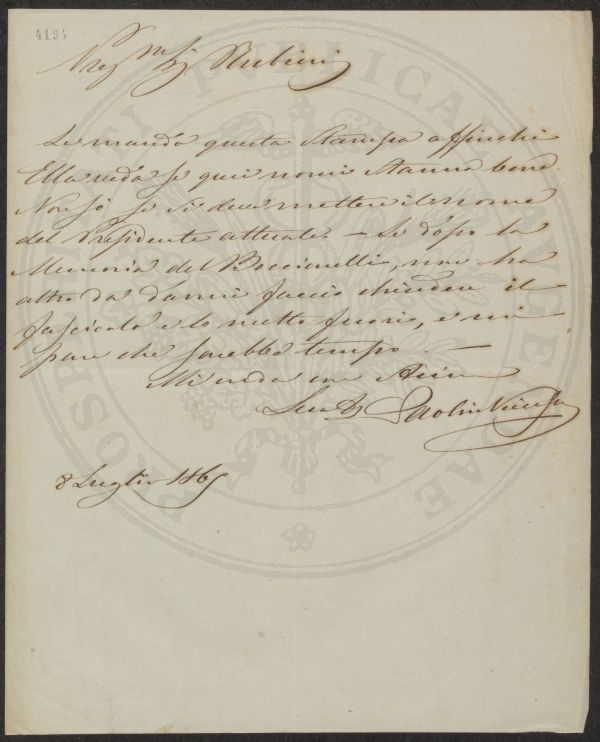 4194
Preg.mo Sig. Rubieri
Le mando questa Stampa affinchè
Ella veda se quei nomi stanno bene
Non so se si deve mettere il nome
del Presidente attuale. — Se dopo la
Memoria del, non ha
altro da darmi faccio chiudere il
fascicolo e lo metto fuori, e mi
pare che sarebbe tempo. —
Mi creda con Stima
Suo
8 Luglio 186
PROSPERITATI PUBLICAE AUGENDAE